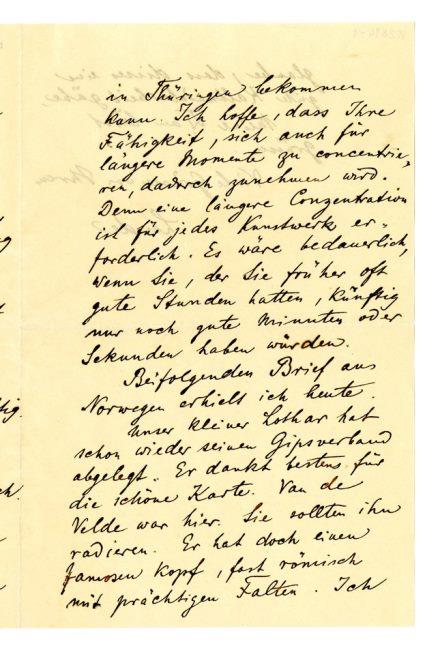 in Thüringen bekommen
kann. Ich hoffe, dass Ihre
Fähigkeit, sich auch für
längere Momente zu concentrie-
ren, dadurch zunehmen wird.
Denn eine längere Conzentration
ist für jedes Kunstwerk er-
forderlich. Es wäre bedauerlich,
wenn Sie, der Sie früher oft
gute Stunden hatten, künftig
nur noch gute Minuten oder
Sekunden haben würden.
Beifolgenden Brief aus
Norwegen erhielt ich heute.
Unser kleiner Lothar hat
schon wieder seinen Gipsverband
abgelegt. Er dankt bestens für
die schöne Karte. Van de
Velde war hier. Sie sollten ihn
radieren. Er hat doch einen
famosen Kopf, fast römisch
mit prächtigen Falten. Ich